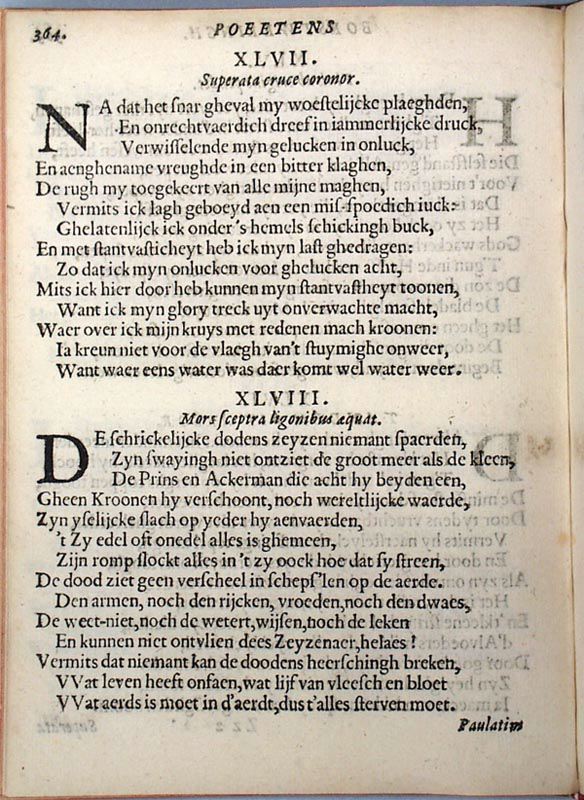 364. POEETENS
XLVII.
Superata cruce coronor.
NA dat het snar gheval my woestelijcke plaeghden,
En onrechtvaerdich dreef in iammerlijcke druck,
Verwisselende myn gelucken in onluck,
En aenghename vreughde in een bitter klaghen,
De rugh my toegekeert van alle mijne maghen,
Vermits ick lagh geboeyd aen een mis-spoedich iuck:
Ghelatenlijck ick onder's hemels schickingh buck,
En met stantvasticheyt heb ick myn last ghedragen:
Zo dat ick myn onlucken voor ghelucken acht,
Mits ick hier door heb kunnen myn stantvastheyt toonen,
Want ick myn glory treck uyt onverwachte macht,
Waer over ick mijn kruys met redenen mach kroonen:
Ia kreun niet voor de vlaegh van't stuymighe onweer,
Want waer eens water was daer komt wel water weer.
XLVIII.
Mors sceptra ligonibus æquat.
DE schrickelijcke dodens zeyzen niemant spaerden,
Zyn swayingh niet ontziet de groot meer als de kleen,
De Prins en Ackerman die acht hy beyden een,
Gheen Kroonen hy verschoont, noch wereltlijcke waerde,
Zyn yselijcke slach op yeder hy aenvaerden,
't Zy edel oft onedel alles is ghemeen,
Zijn romp slockt alles in 't zy oock hoe dat sy streen,
De dood ziet geen verscheel in scheps'len op de aerde.
Den armen, noch den rijcken, vroeden, noch den dwaes,
De weet-niet, noch de wetert, wijsen, noch de leken
En kunnen niet ontvlien dees Zeyzenaer, helaes!
Vermits dat niemant kan de doodens heerschingh breken,
VVat leven heeft onfaen, wat lijf van vleesch en bloet
VVat aerds is moet in d'aerdt, dus t'alles sterven moet.
Paulatim